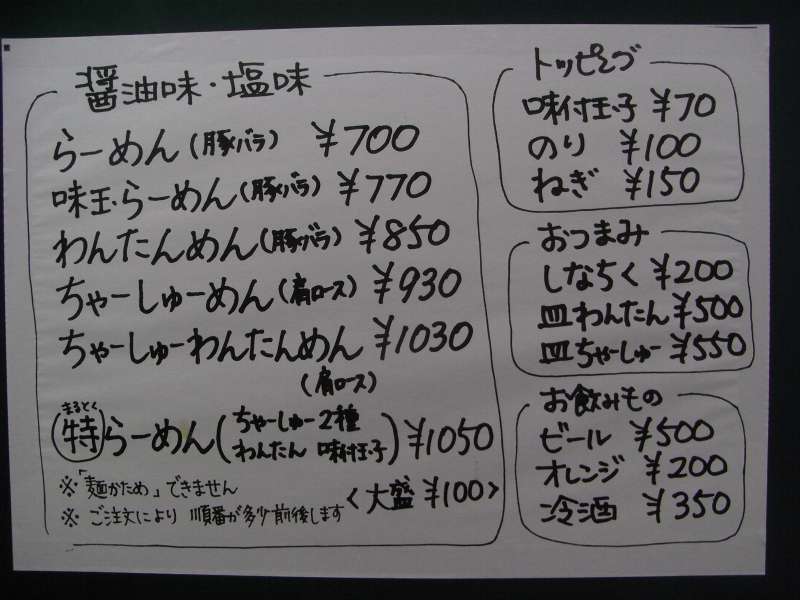 醤油味・塩味
らーめん(豚バラ) ¥700
味玉らーめん(豚バラ) ¥770
わんたんめん(豚バラ) ¥850
ちゃーしゅーめん(肩ロース) ¥930
ちゃーしゅーわんたんめん ¥1030
(肩ロース)
まるとく
特らーめん(ちゃーしゅー2種 わんたん 味付玉子) ¥1050
※「麺かため」できません
<大盛 ¥100>
※ ご注文により 順番が多少前後します
トッピング
味付玉子 ¥70
のり ¥100
ねぎ ¥150
おつまみ
しなちく ¥200
皿わんたん ¥500
皿ちゃーしゅー ¥550
お飲みもの
ビール ¥500
オレンジ ¥200
冷酒 ¥350